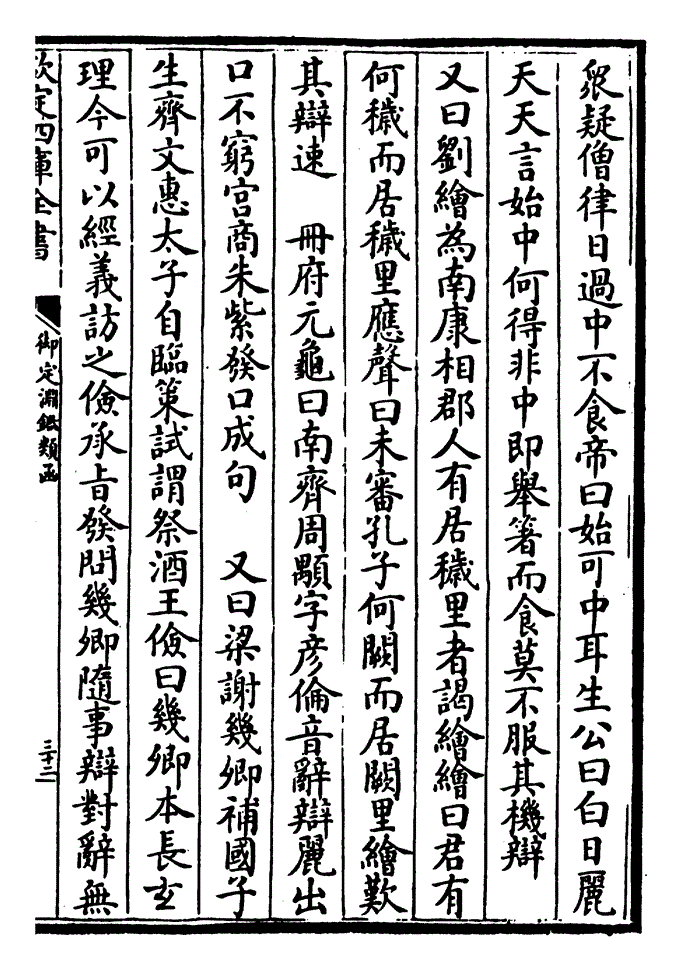 衆疑僧律日過中不食帝曰始可中耳生公曰白日麗
天天言始中何得非中即舉箸而食莫不服其機辯
又曰劉繪為南康相郡人有居穢里者謁繪繪曰君有
何穢而居穢里應聲曰未審孔子何闕而居闕里繪歎
其辯速　冊府元龜曰南齊周顒字彦倫音辭辯麗出
口不窮宫商朱紫發口成句　又曰梁謝幾卿補國子
生齊文惠太子自臨策試謂祭酒王儉曰幾卿本長玄
理今可以經義訪之儉承旨發問幾卿隨事辯對辭無
欽定四庫全書
御定淵鑑類函
三十二